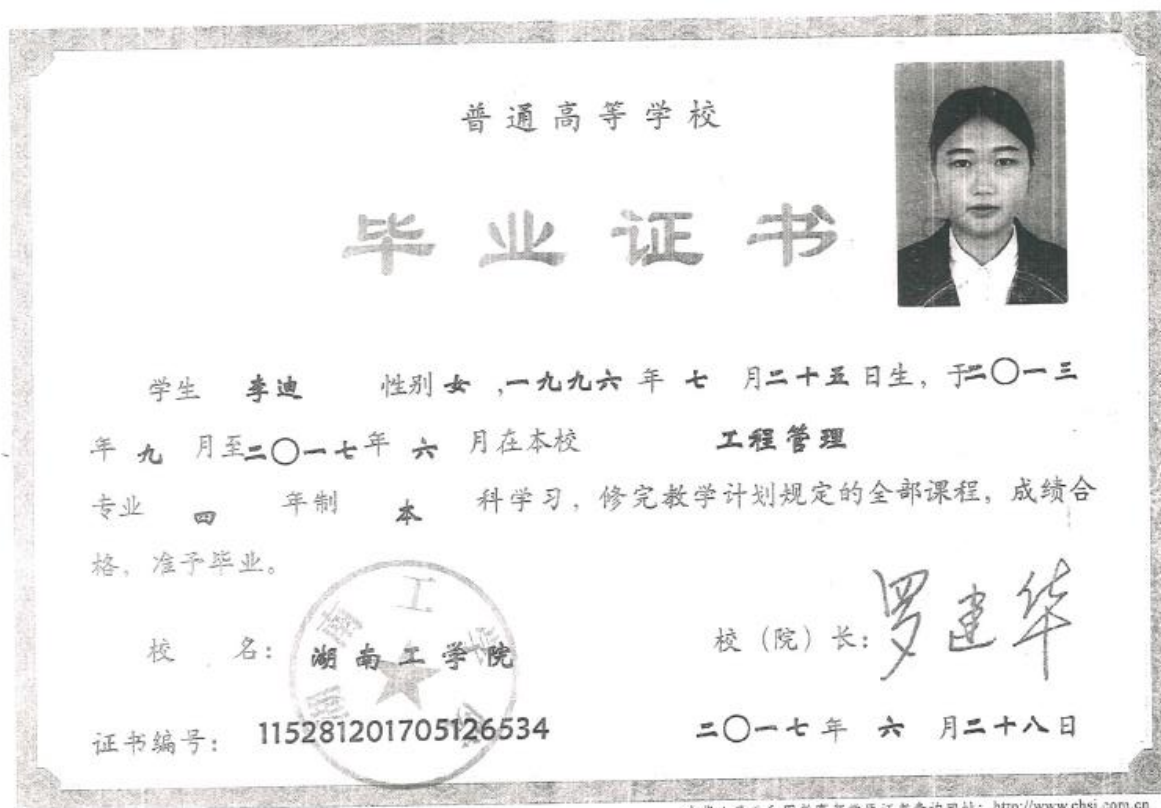 普通高等学校
毕业证书
学生 李迪 性别 女 ,一九九六 年 七 月二十五日生，于二〇一三
年 九 月至二〇一七年 六 月在本校 工程管理
专业 四 年制 本 科学习，修完教学计划规定的全部课程，成绩合
格，准予毕业。
校 名： 湖南工学院
校（院）长：罗建华
证书编号： 115281201705126534
二〇一七年 六 月二十八日
查询网站：http://www.chsi.com.cn